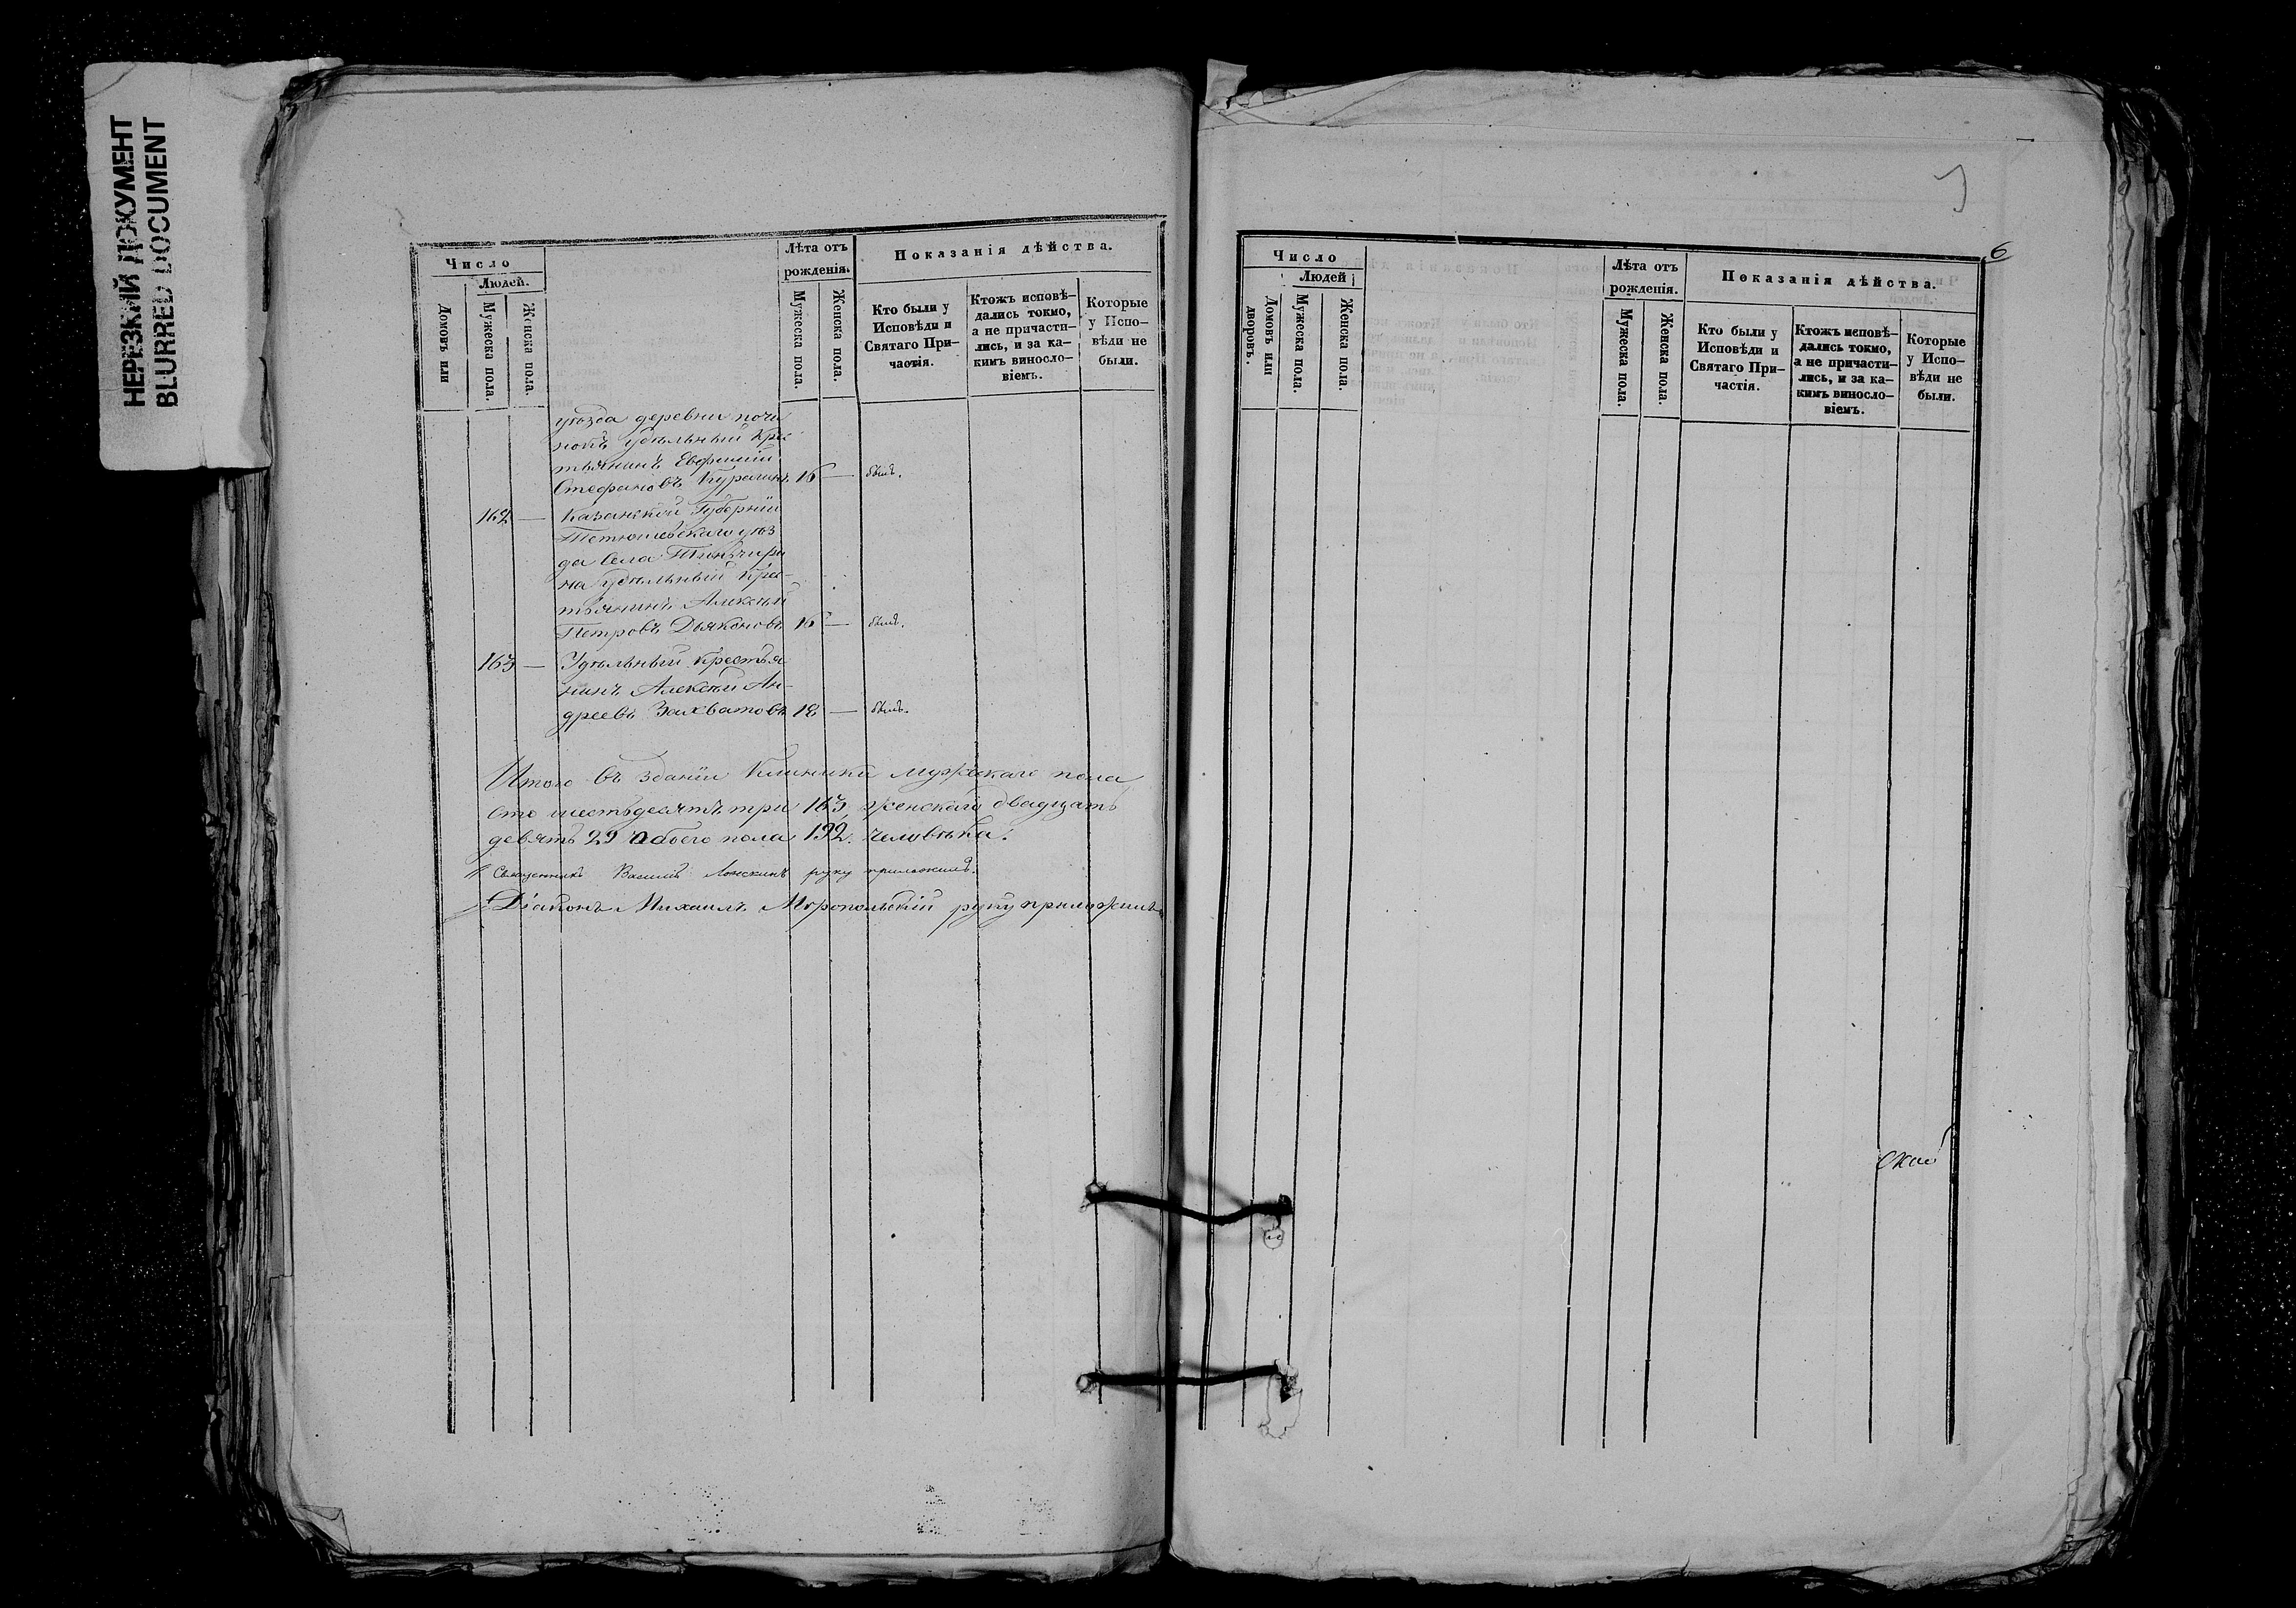 НЕРЕЗКИЙ ДОКУМЕНТ
BLURRED DOCUMENT
Число
Людей.
Домовъ или
Мужеска пола.
Женска пола.
Лѣта отъ
рожденія.
Мужеска пола.
Женска пола.
Показанія дѣйства.
Кто были у
Исповѣди и
Святаго При-
частія.
Ктожъ исповѣ-
дались токмо,
а не причасти-
лись, и за ка-
кимъ виносло-
віемъ.
Которые
у Испо-
вѣди не
были.
уѣзда деревни почи
нокъ удѣльный Крес
тьянинъ
Стефановъ 16 — былъ.
162 — Казанской Губерніи
Тетюшевскаго уѣз
да Села
на удѣльный Крес-
тьянинъ Алексѣй
Петровъ Дьяконовъ 16 — былъ.
163 — Удѣльный крестья
нинъ Алексѣй Ан-
дреевъ Захватовъ 18 — былъ.
Итого въ зданіи Клиники мужескаго пола
сто шестьдесятъ три 163, женскаго двадцать
девять 29 обоего пола 192. человѣка.
Священникъ Василій руку приложилъ.
Діаконъ Михаилъ руку приложилъ
6
Число
Людей
Домовъ или
дворовъ.
Мужеска пола.
Женска пола.
Лѣта отъ
рожденія.
Мужеска пола.
Женска пола.
Показанія дѣйства.
Кто были у
Исповѣди и
Святаго При-
частія.
Ктожъ исповѣ-
дались токмо,
а не причасти-
лись, и за ка-
кимъ виносло-
віемъ.
Которые
у Испо-
вѣди не
были.
ской